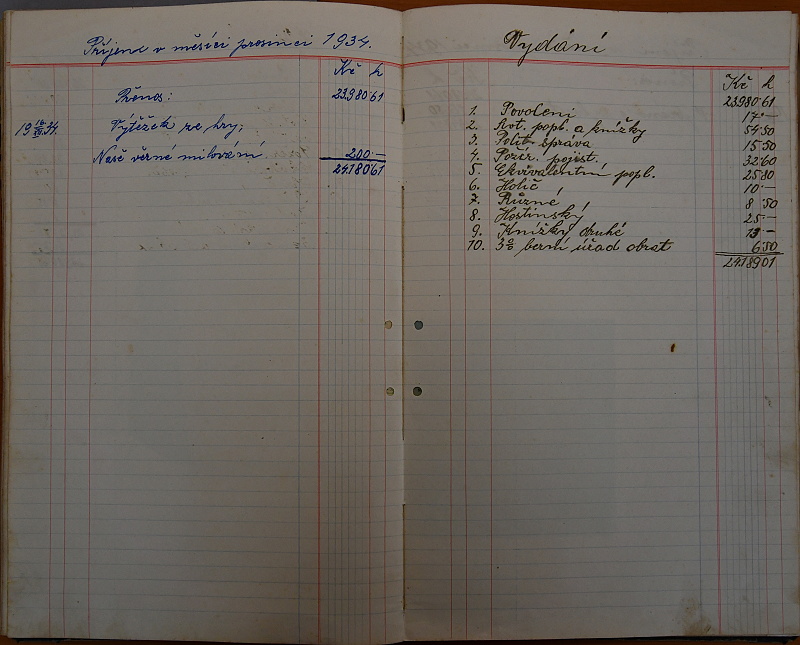 Příjem v měsíci prosinci 1934.
Kč h
Přenos: 23.980 61
19 16/XII 34 Výtěžek ze hry;
Naše věrné milování 200 -
24.180 61
Vydání
Kč h
23.980 61
1. Povolení 17 -
2. Aut. popl. a knížky 54 50
3. Polit. správa 15 50
4. Požár. pojist. 32 60
5. Ekvivalentní popl. 25 80
6. Holič 10 -
7. Různé 8 50
8. Hostinský 25 -
9. Knížky druhé 13 -
10. 3% berní úřad obrat 6 50
24.189 01